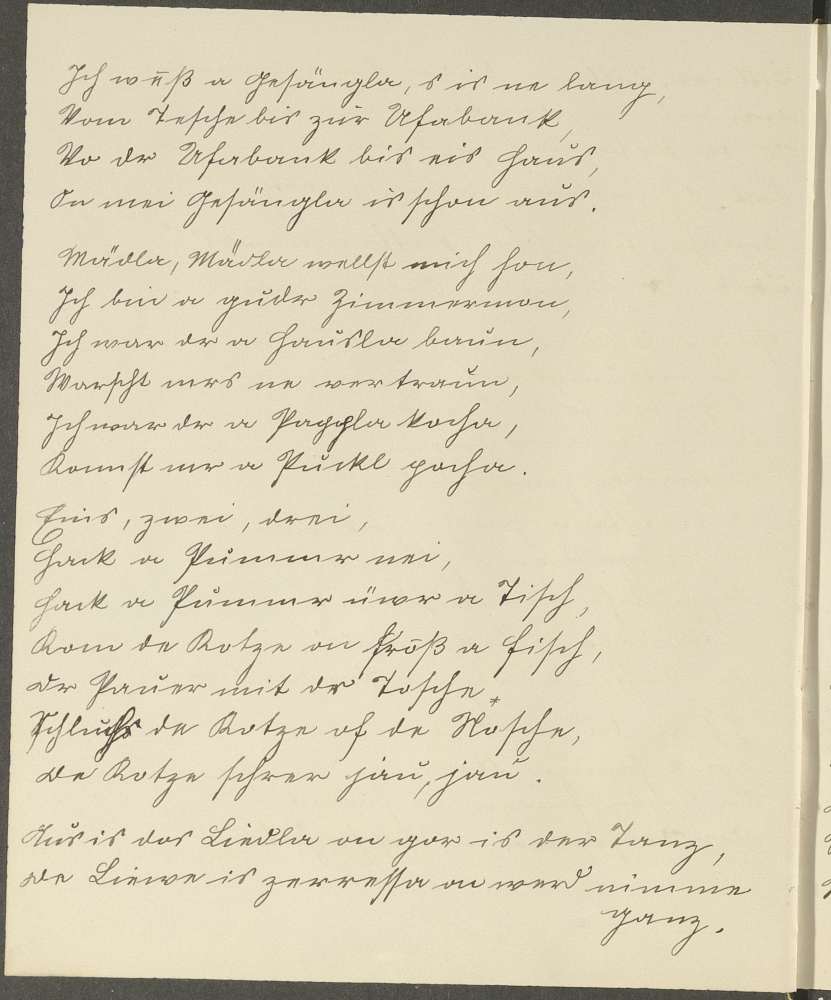 Ich wēß a Gesängla, s is ne lang,
Vom Tesche bis zur Ufabank,
Vo dr Ufabank bis eis Haus,
On mei Gesängla is schon aus.
Mädla, Mädla wellst mich hon,
Ich bin a gudr Zimmermon,
Ich war dr a Hausla baun,
Warscht mrs ne vertraun,
Ich war dr a Pappla kocha,
Konnst mr a Puckl pocha.
Eins, zwei, drei,
Hack a Pummr nei,
Hack a Pummr üwr a Tisch,
Kom de Kotze on frōß a Fisch,
Dr Pauer mit dr Tosche
Schlug de Kotze of de Nosche,*
De Kotze schrer jau, jau.
Aus is dos Liedla on gor is der Tanz,
De Liewe is zerressa on werd nimme
ganz.